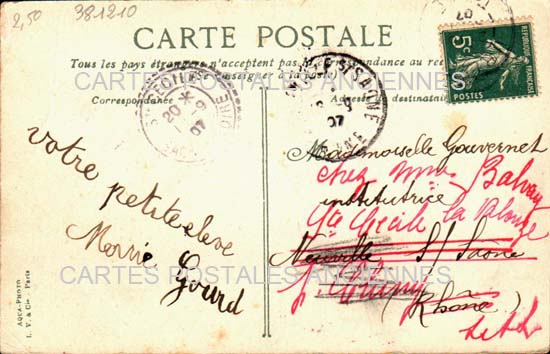 2,50
381210
CARTE POSTALE
Tous les pays étrangers n'acceptent pas la correspondance au recto
(Se renseigner à la poste)
CARTES POSTALES ANCIENNES
Correspondance
Adresse du destinataire
RÉPUBLIQUE FRANÇAISE
5c
POSTES
20
07
07
votre
petite élève
Marie
Gourd
Mademoiselle Gouvernet
chez Mme Balvay
institutrice
Ste Cécile la Valouze
Neuville S/ Saone
(Rhône)
CARTES POSTALES ANCIENNES
AQUA-PHOTO
L. V. & Cie. Paris